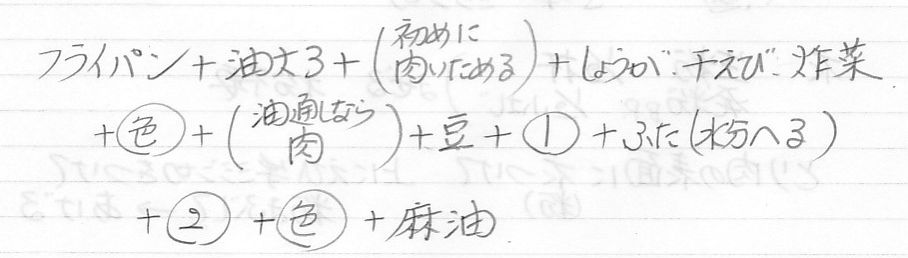 フライパン+油大3+(初めに肉いためる)+しょうが.干えび.炸菜
+色+(油通しなら肉)+豆+1+ふた(水分へる)
+2+色+麻油